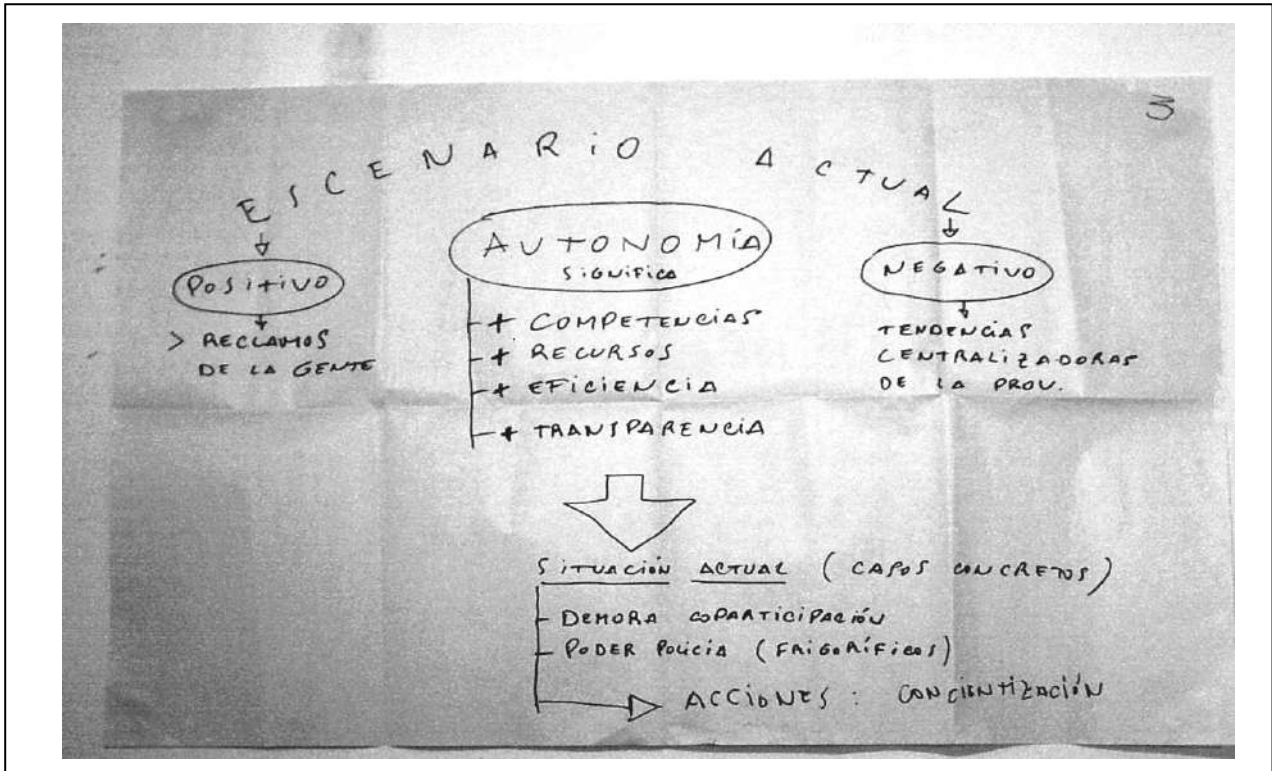 3
ESCENARIO ACTUAL
POSITIVO
> RECLAMOS
DE LA GENTE
AUTONOMÍA
SIGNIFICA
+ COMPETENCIAS
+ RECURSOS
+ EFICIENCIA
+ TRANSPARENCIA
NEGATIVO
TENDENCIAS
CENTRALIZADORAS
DE LA PROV.
SITUACIÓN ACTUAL (CASOS CONCRETOS)
DEMORA COPARTICIPACIÓN
PODER POLICÍA (FRIGORÍFICOS)
ACCIONES: CONCIENTIZACIÓN